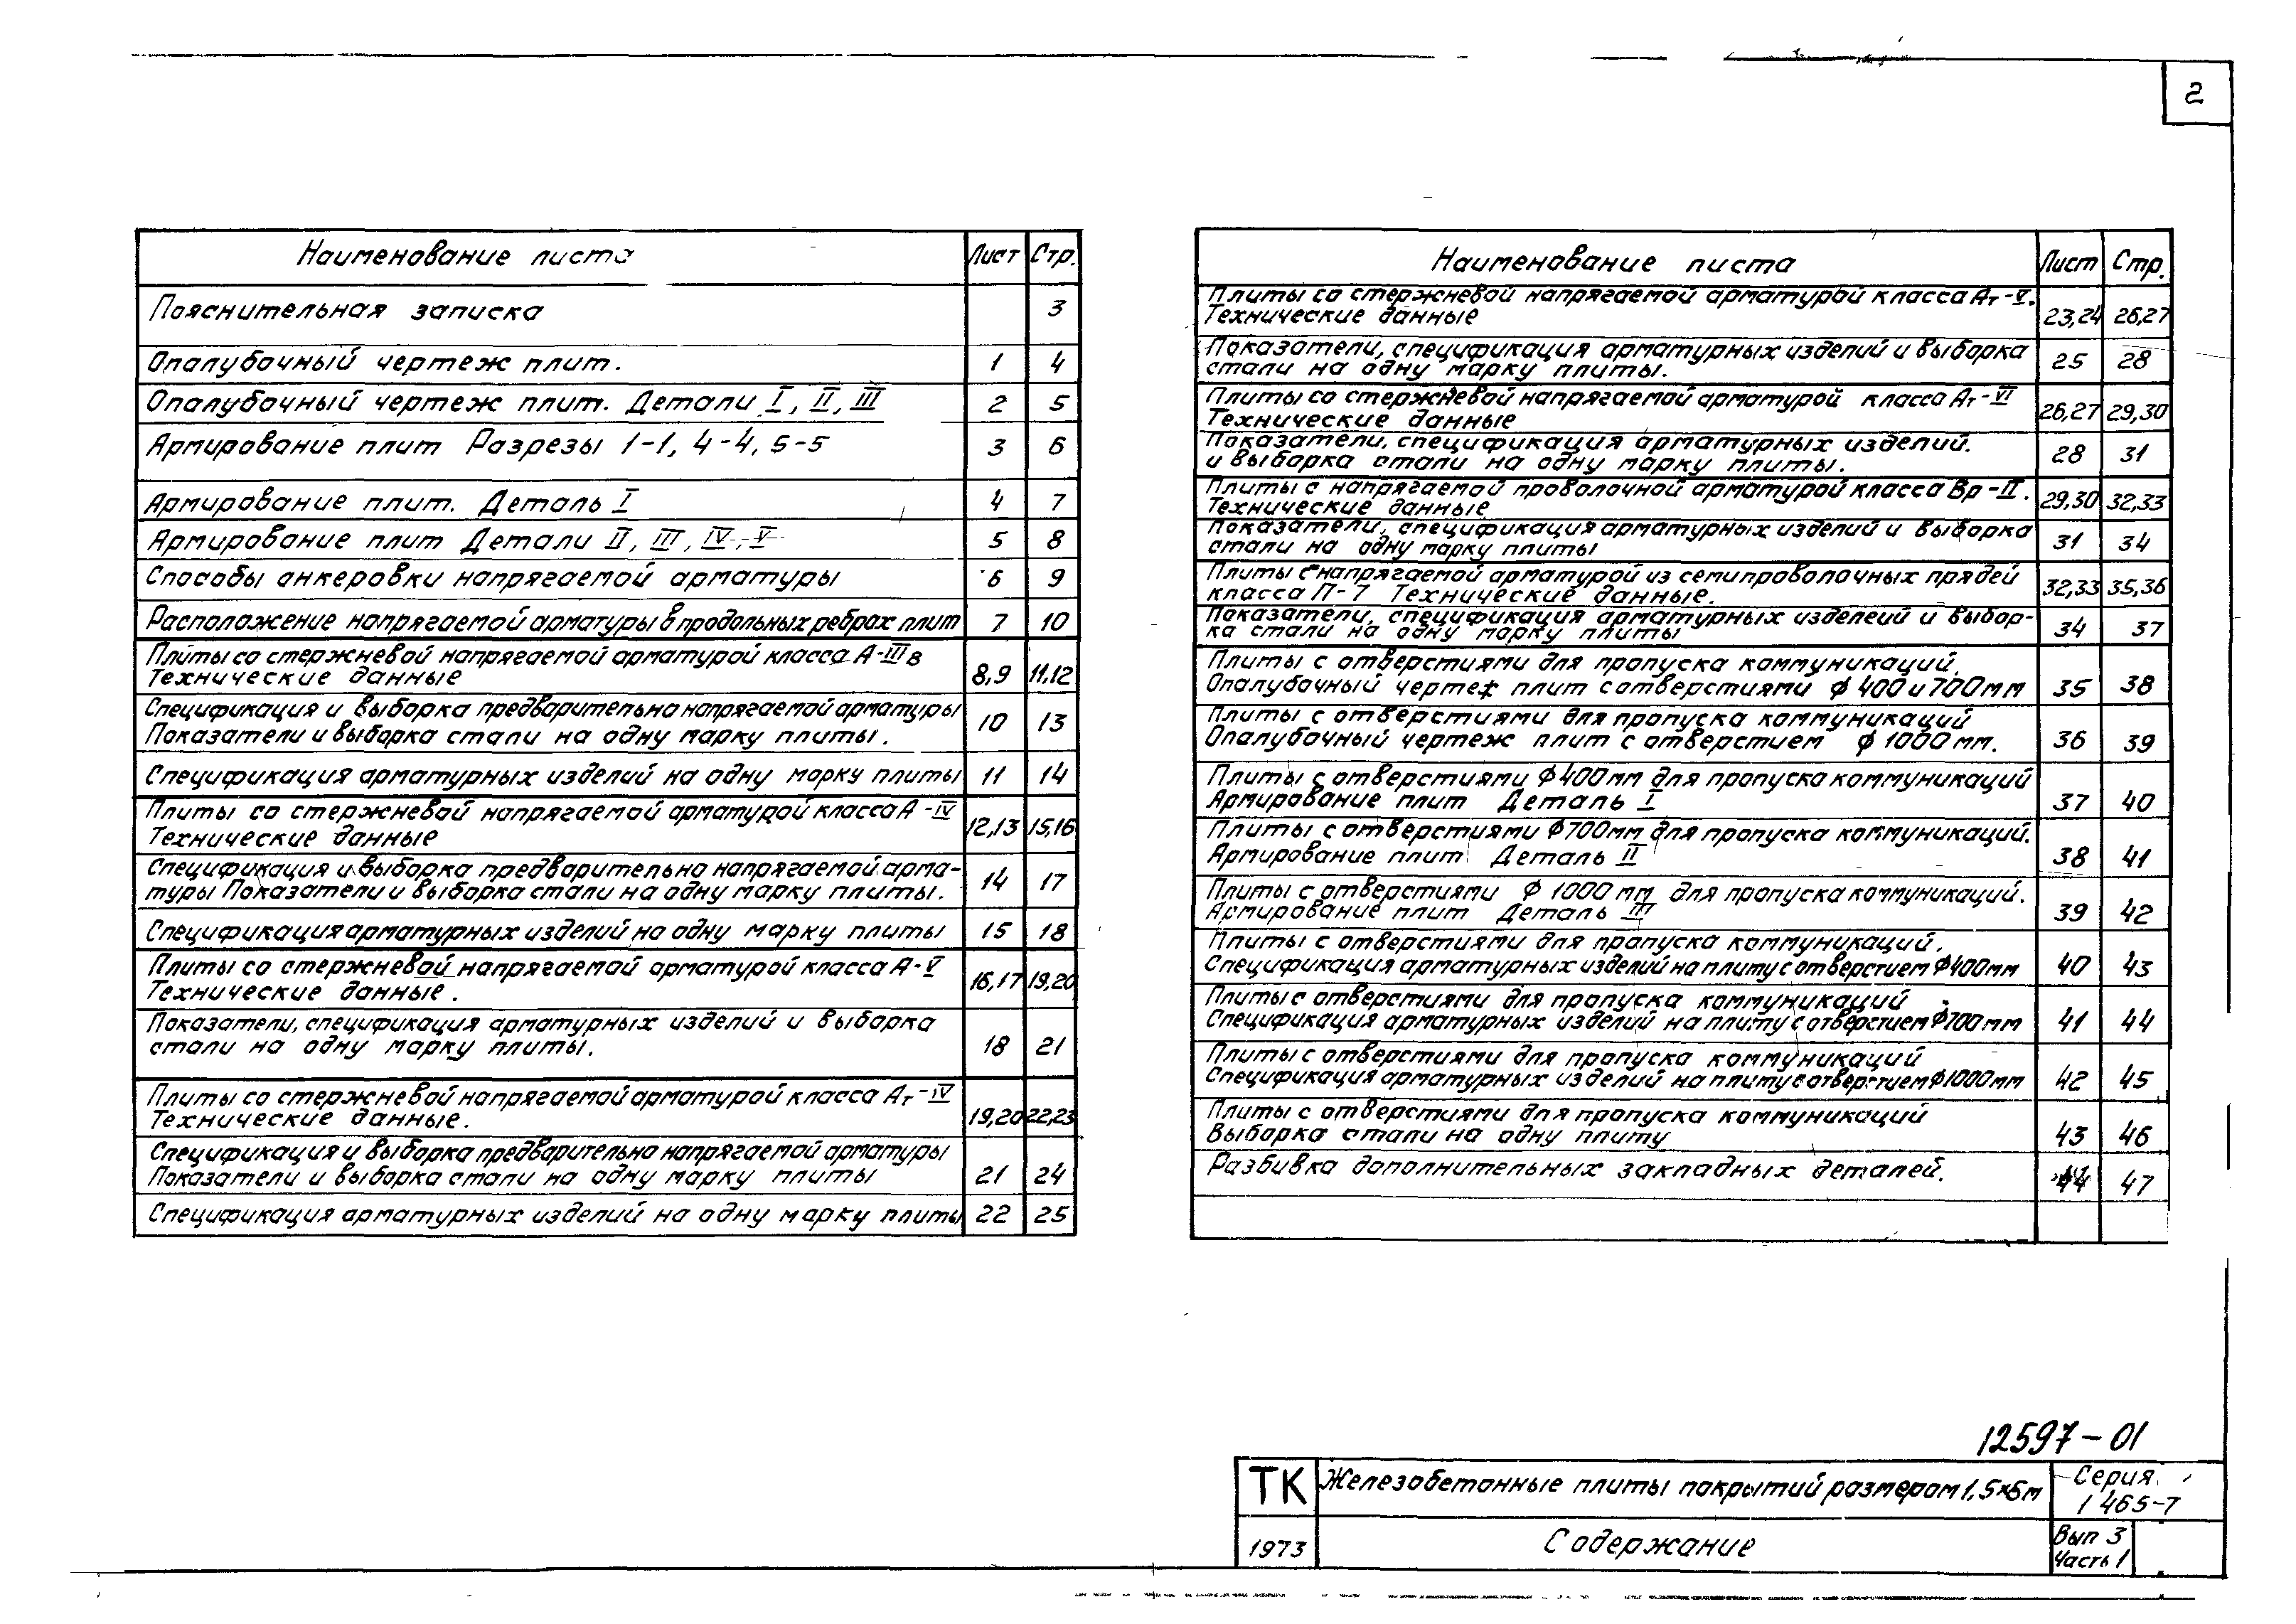 2
Наименование листа Лист Стр.
Пояснительная записка 3
Опалубочный чертеж плит. 1 4
Опалубочный чертеж плит. Детали I, II, III 2 5
Армирование плит Разрезы 1-1, 4-4, 5-5 3 6
Армирование плит. Деталь I 4 7
Армирование плит Детали II, III, IV, V 5 8
Способы анкеровки напрягаемой арматуры 6 9
Расположение напрягаемой арматуры в продольных ребрах плит 7 10
Плиты со стержневой напрягаемой арматурой класса А-IIIв
Технические данные 8,9 11,12
Спецификация и выборка предварительно напрягаемой арматуры
Показатели и выборка стали на одну марку плиты. 10 13
Спецификация арматурных изделий на одну марку плиты 11 14
Плиты со стержневой напрягаемой арматурой класса А-IV
Технические данные 12,13 15,16
Спецификация и выборка предварительно напрягаемой арма-
туры Показатели и выборка стали на одну марку плиты. 14 17
Спецификация арматурных изделий на одну марку плиты 15 18
Плиты со стержневой напрягаемой арматурой класса А-V
Технические данные. 16,17 19,20
Показатели, спецификация арматурных изделий и выборка
стали на одну марку плиты. 18 21
Плиты со стержневой напрягаемой арматурой класса Ат-IV
Технические данные. 19,20 22,23
Спецификация и выборка предварительно напрягаемой арматуры
Показатели и выборка стали на одну марку плиты 21 24
Спецификация арматурных изделий на одну марку плиты 22 25
Наименование листа Лист Стр.
Плиты со стержневой напрягаемой арматурой класса Ат-V.
Технические данные 23,24 26,27
Показатели, спецификация арматурных изделий и выборка
стали на одну марку плиты. 25 28
Плиты со стержневой напрягаемой арматурой класса Ат-VI
Технические данные 26,27 29,30
Показатели, спецификация арматурных изделий.
и выборка стали на одну марку плиты. 28 31
Плиты с напрягаемой проволочной арматурой класса Вр-II.
Технические данные 29,30 32,33
Показатели, спецификация арматурных изделий и выборка
стали на одну марку плиты 31 34
Плиты с напрягаемой арматурой из семипроволочных прядей
класса П-7 Технические данные. 32,33 35,36
Показатели, спецификация арматурных изделеий и выбор-
ка стали на одну марку плиты 34 37
Плиты с отверстиями для пропуска коммуникаций.
Опалубочный чертеж плит с отверстиями ф 400 и 700мм 35 38
Плиты с отверстиями для пропуска коммуникаций
Опалубочный чертеж плит с отверстием ф 1000мм. 36 39
Плиты с отверстиями Ф400мм для пропуска коммуникаций
Армирование плит Деталь I 37 40
Плиты с отверстиями Ф700мм для пропуска коммуникаций.
Армирование плит Деталь II 38 41
Плиты с отверстиями Ф 1000 мм для пропуска коммуникаций.
Армирование плит Деталь III 39 42
Плиты с отверстиями для пропуска коммуникаций.
Спецификация арматурных изделий на плиту с отверстием Ф400мм 40 43
Плиты с отверстиями для пропуска коммуникаций
Спецификация арматурных изделий на плиту с отверстием Ф700мм 41 44
Плиты с отверстиями для пропуска коммуникаций
Спецификация арматурных изделий на плиту с отверстием Ф1000мм 42 45
Плиты с отверстиями для пропуска коммуникаций
Выборка стали на одну плиту 43 46
Разбивка дополнительных закладных деталей. 44 47
12597-01
ТК Железобетонные плиты покрытий размером 1,5×6м Серия
1 465-7
1973 Содержание Вып 3
Часть 1